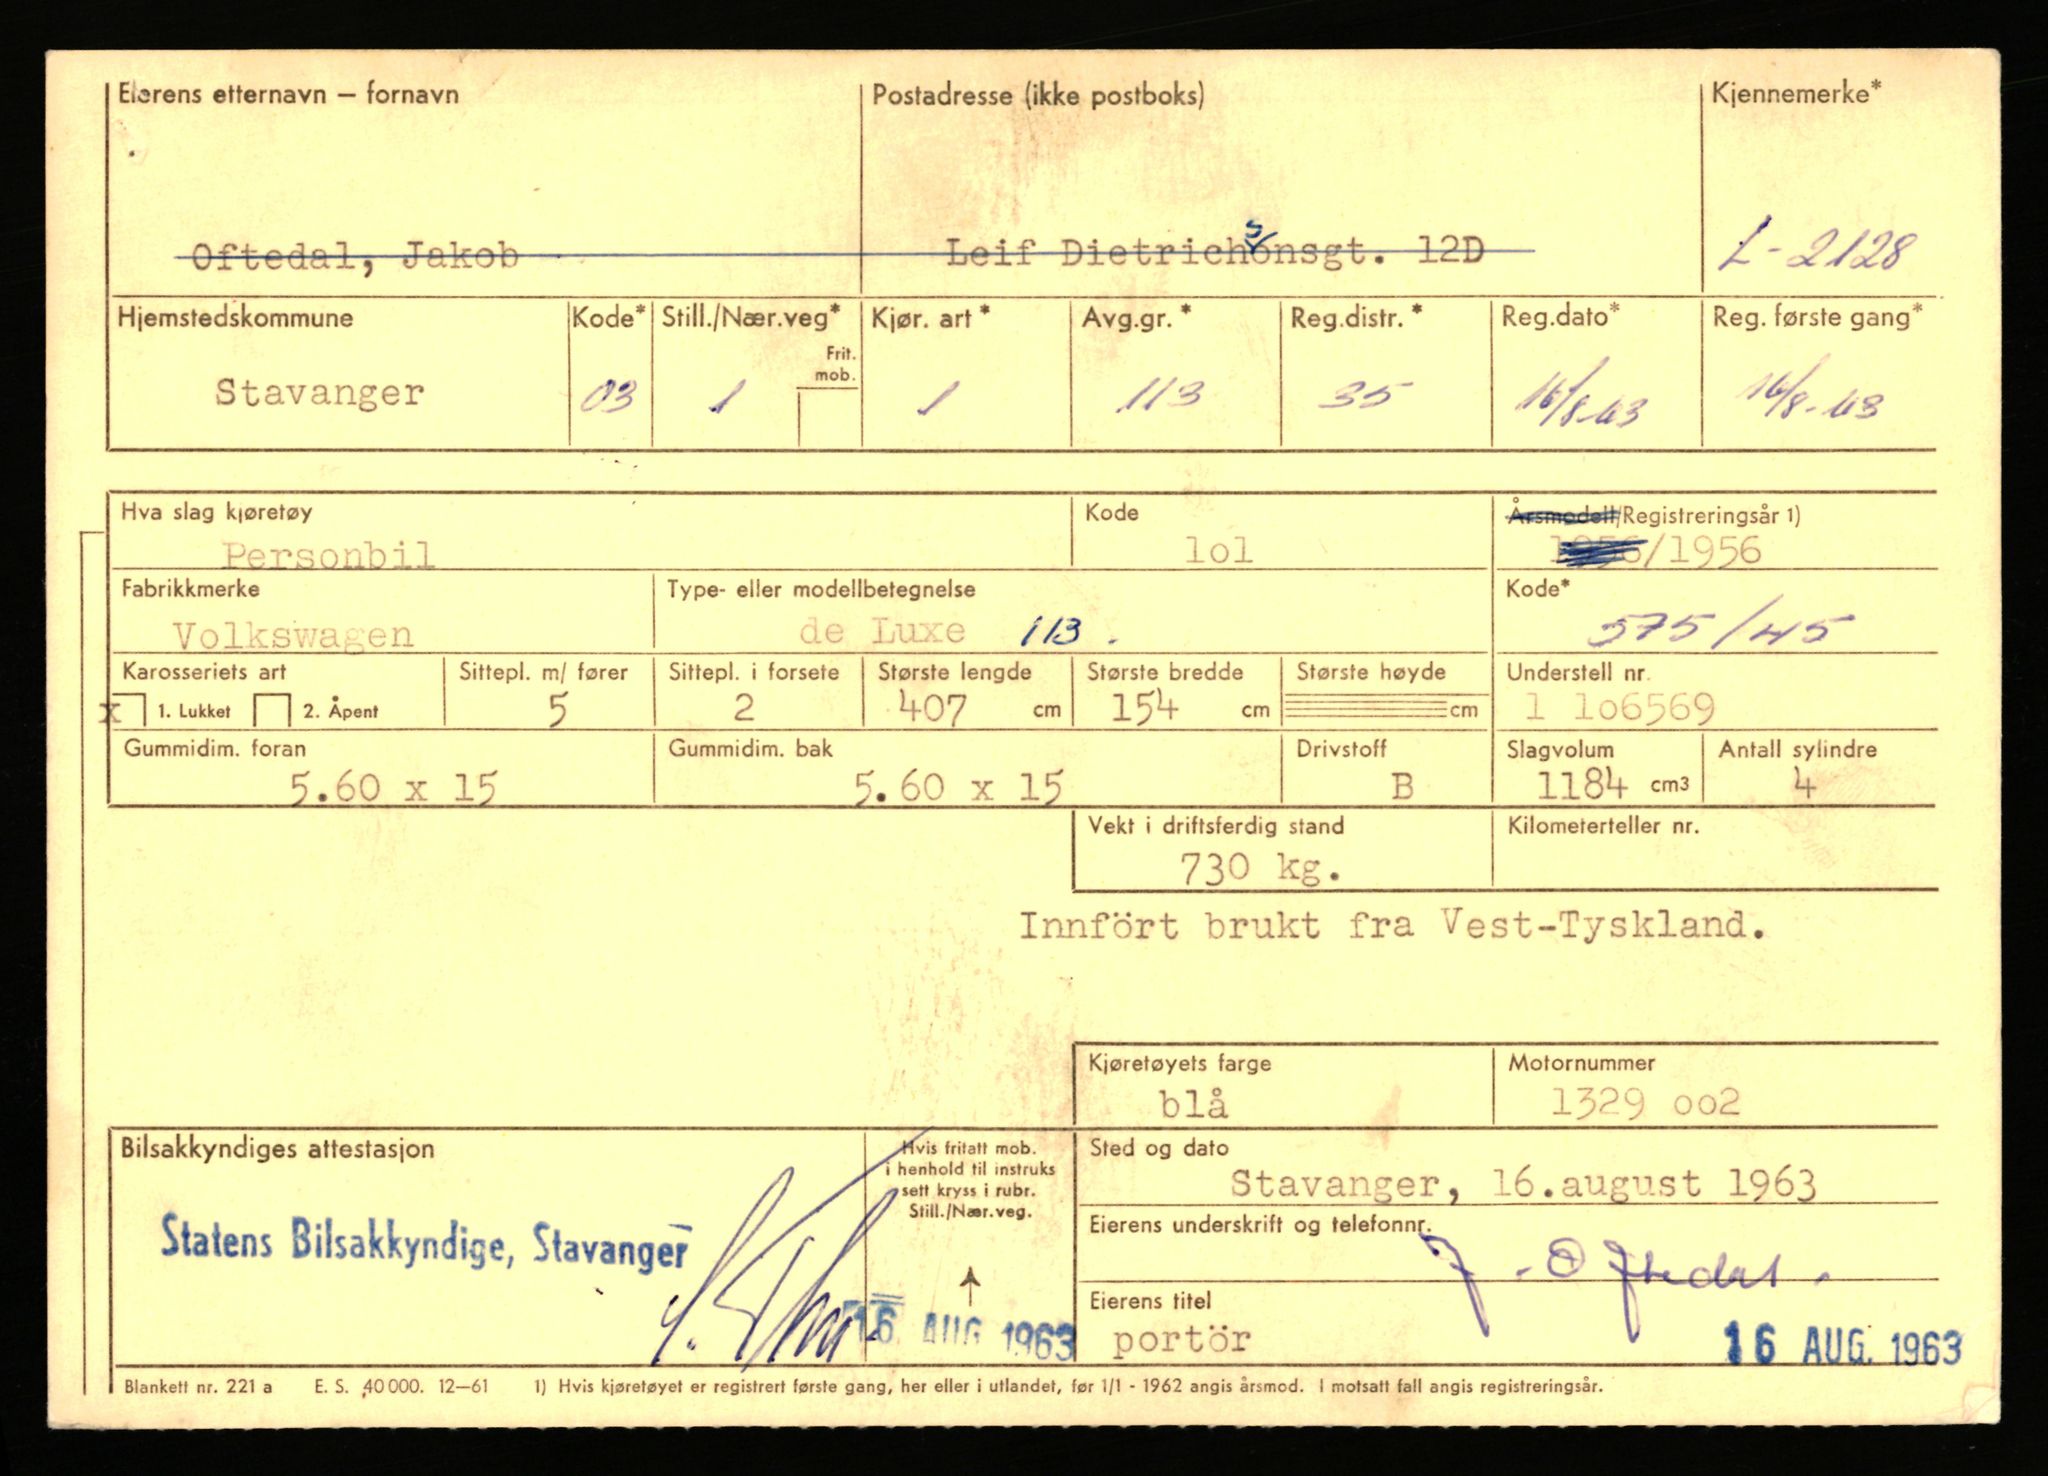 Eierens etternavn – fornavn
Postadresse (ikke postboks)
Kjennemerke*
Oftedal, Jakob
Leif Dietrichsonsgt. 12D
L-2128
Hjemstedskommune
Kode*
Still./Nær.veg*
Frit. mob.
Kjør. art *
Avg.gr. *
Reg.distr. *
Reg.dato*
Reg. første gang*
Stavanger
03
1
1
113
35
16/8-63
16/8-63
Hva slag kjøretøy
Kode
Årsmodell/Registreringsår 1)
Personbil
1o1
1956/1956
Fabrikkmerke
Type- eller modellbetegnelse
Kode*
Volkswagen
de Luxe 113.
575/45
Karosseriets art
Sittepl. m/ fører
Sittepl. i forsete
Største lengde
Største bredde
Største høyde
Understell nr.
x 1. Lukket 2. Åpent
5
2
407 cm
154 cm
cm
1 1o6569
Gummidim. foran
Gummidim. bak
Drivstoff
Slagvolum
Antall sylindre
5.60 x 15
5.60 x 15
B
1184 cm3
4
Vekt i driftsferdig stand
Kilometerteller nr.
730 kg.
Innfört brukt fra Vest-Tyskland.
Kjøretøyets farge
Motornummer
blå
1329 oo2
Bilsakkyndiges attestasjon
Hvis fritatt mob.
i henhold til instruks
sett kryss i rubr.
Still./Nær.veg.
Sted og dato
Stavanger, 16.august 1963
Eierens underskrift og telefonnr.
Statens Bilsakkyndige, Stavanger
J. Oftedal.
Eierens titel
16 AUG 1963
portör
16 AUG. 1963
Blankett nr. 221 a E. S. 40 000. 12–61 1) Hvis kjøretøyet er registrert første gang, her eller i utlandet, før 1/1 - 1962 angis årsmod. I motsatt fall angis registreringsår.